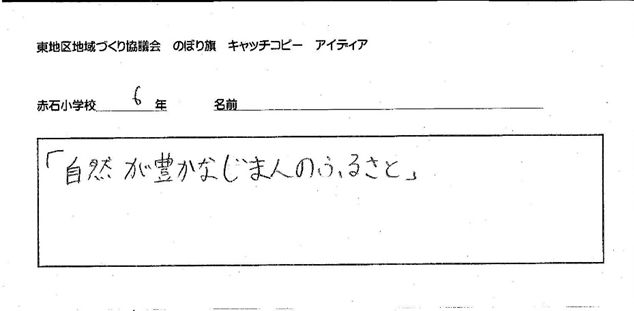 東地区地域づくり協議会 のぼり旗 キャッチコピー アイディア
赤石小学校 6 年 名前
「自然が豊かなじまんのふるさと」